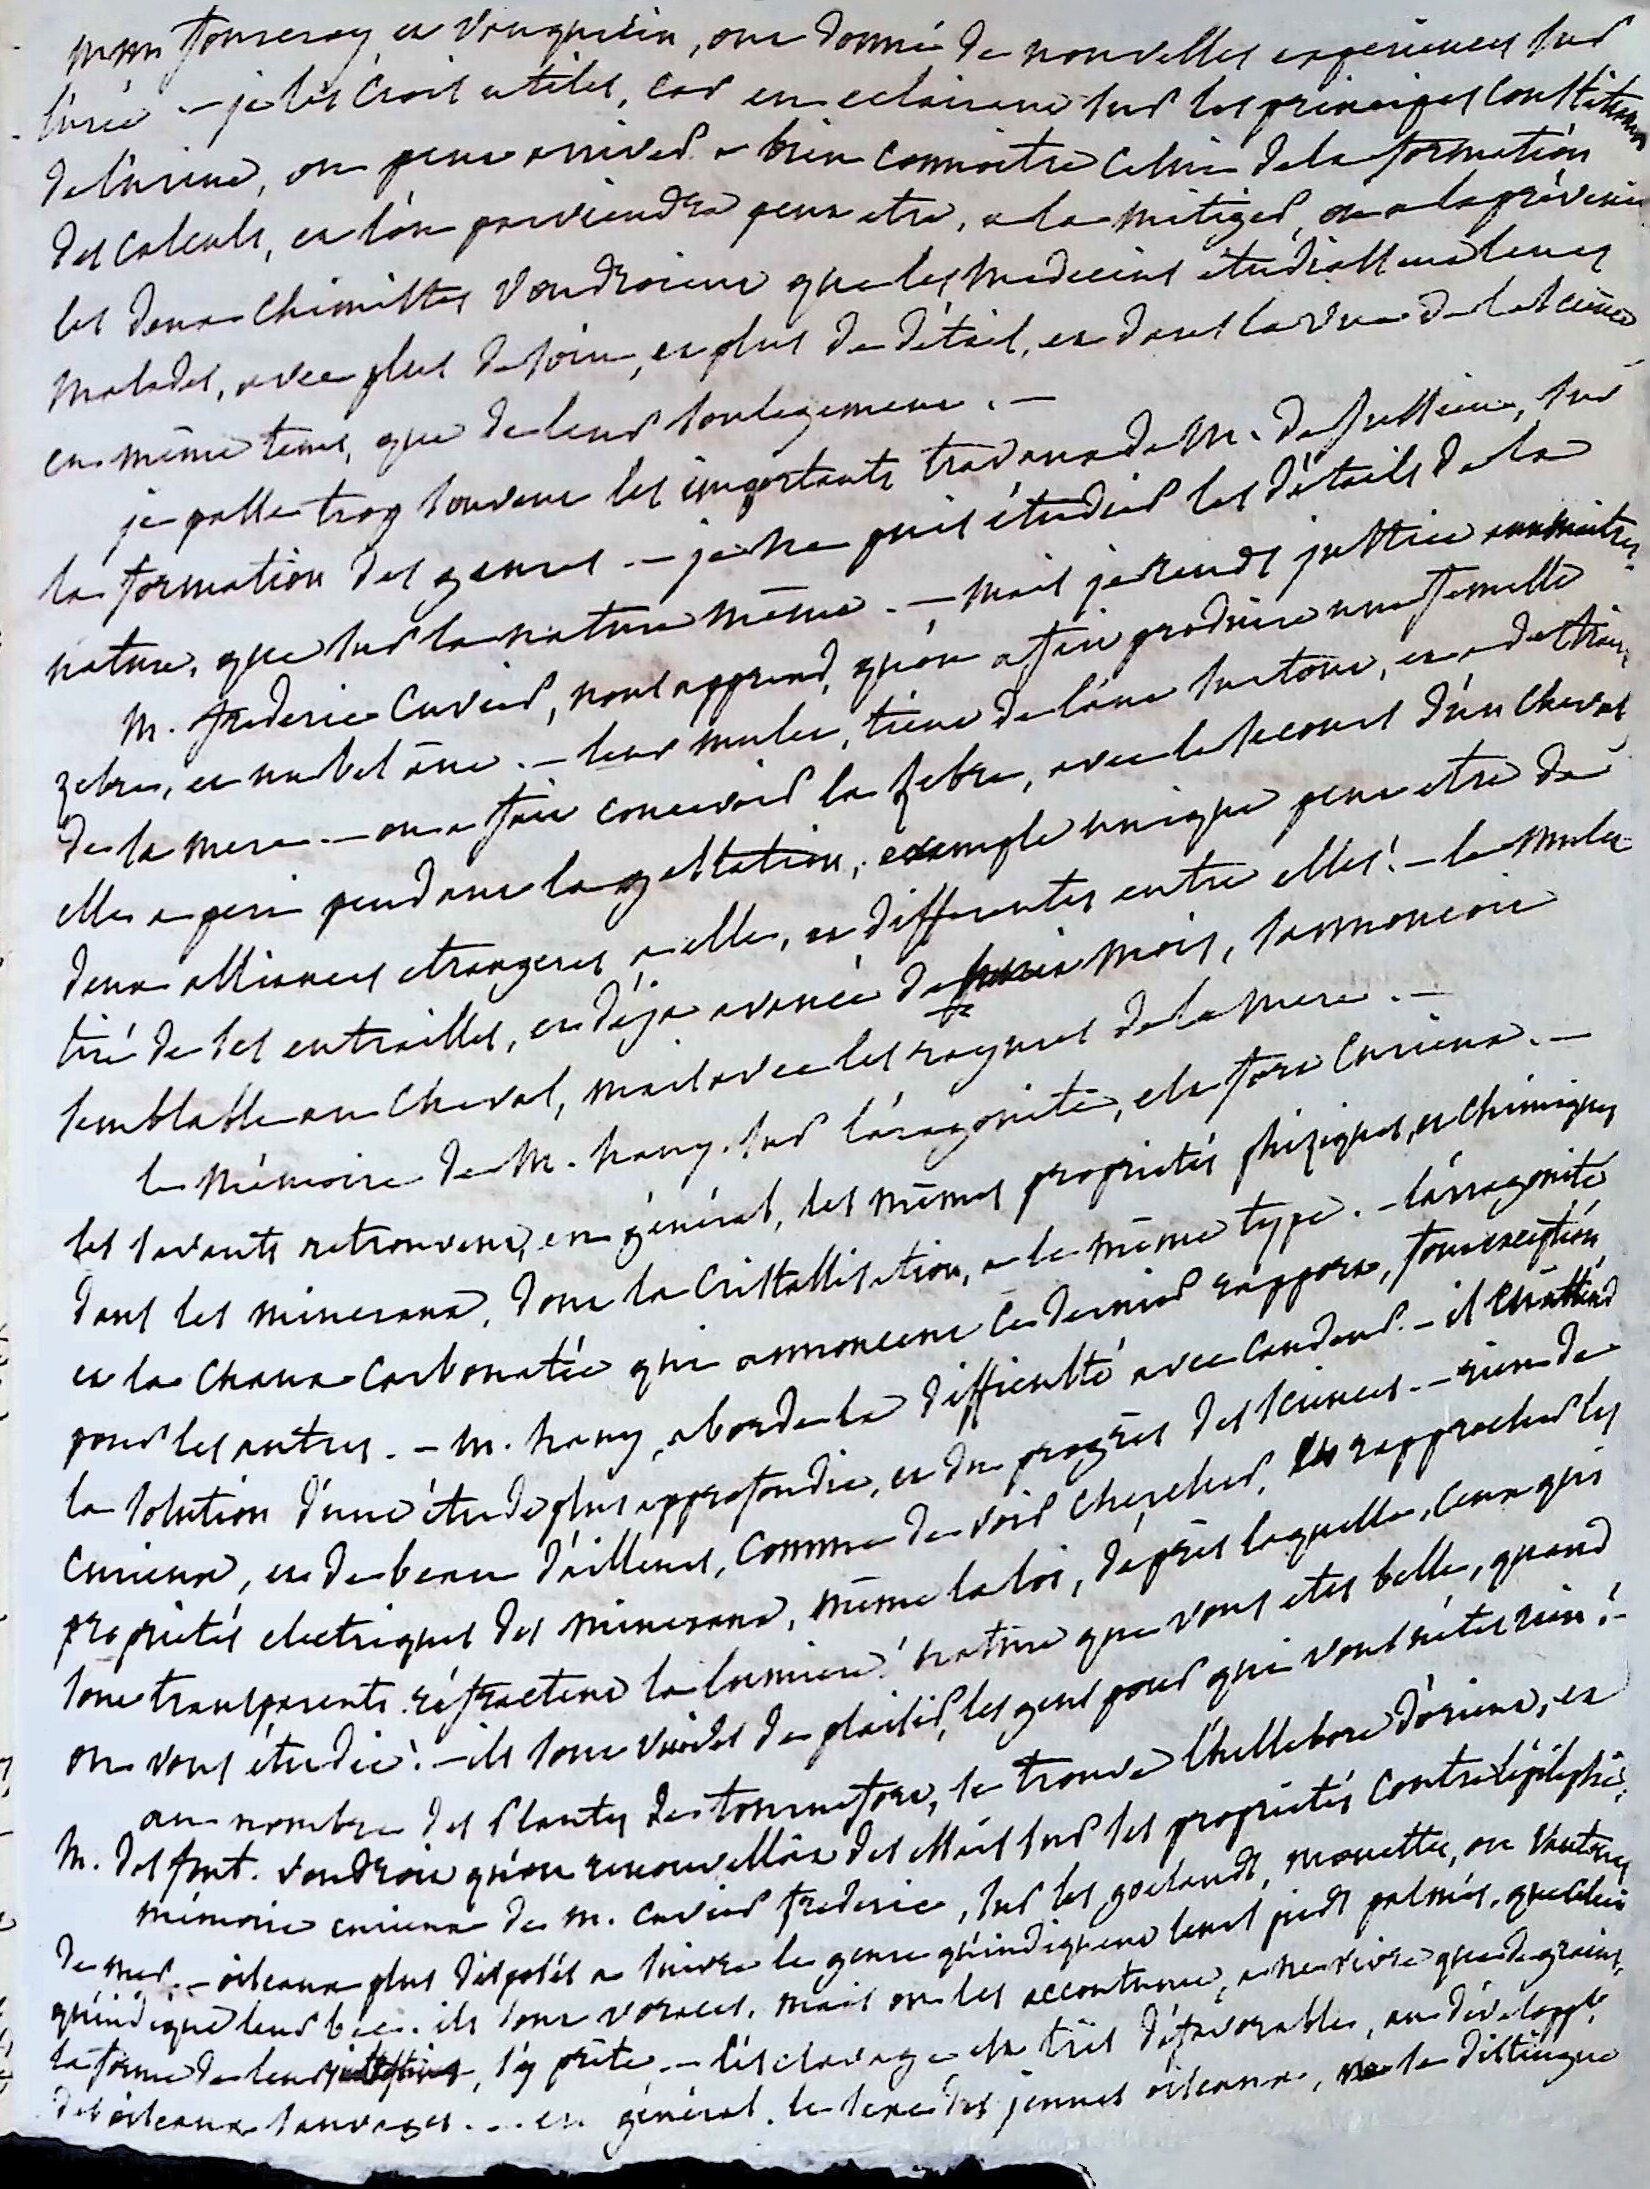 mm fourcroy et vauquelin, ont donné de nouvelles experiences sur
l'urée. — je les crois utiles, car en eclairant sur les principes constituans
de l'urine, on peut arriver a bien connoitre celui de la formation
des calculs, et l'on parviendra peut etre, a la mitiger, ou a la prévenir.
les deux chimistes voudroient que les medecins étudiassent leurs
malades, avec plus de soin, et plus de détail, et dans la vue de la science
en même tems, que de leur soulagement. —
je passe trop souvent les importants travaux de M. de Jussieu, sur
la formation des genres. — je ne puis étudier les détails de la
nature, que sur la nature même. — mais je rends justice aux maitres.
M. frederic Cuvier, nous apprend, qu'on a fait produire une femelle
zebre, et un bel âne. — leur mulet, tient de l'âne surtout, et a des traits
de la mere. — on a fait concevoir la zebre, avec le secours d'un cheval,
elle a peri pendant la gestation, exemple unique peut etre de
deux alliances etrangeres a elle, et differentes entre elles! — le mulet
tiré de ses entrailles, et déja avancé de huit mois, s'annoncoit
semblable au cheval, mais avec les rayures de la mere. —
le mémoire de M. hauy. sur l'aragonite, est fort curieux. —
les savants retrouvent, en général, les mêmes propriétés phisiques, et chimiques,
dans les mineraux, dont la cristallisation, a le même type. — l'arragonite
et la chaux carbonatée qui annoncent ce dernier rapport, font exception
pour les autres. — M. hauy, aborde la difficulté avec candeur. — il en attend
la solution d'une étude plus approfondie, et du progrès des sciences. — rien de
curieux, et de beau d'ailleurs, comme de voir chercher, et rapprocher les
propriétés electriques des mineraux, même la loi, d'après laquelle, ceux qui
sont transparents réfractent la lumiere! nature que vous etes belle, quand
on vous étudie! — ils sont vuides de plaisir, les gens pour qui vous n'êtes rien! —
au nombre des plantes de tournefort, se trouve l'hellebore d'orient, et
M. desfont. voudroit qu'on renouvellât des essais sur les propriétés contre l'épilepsie.
mémoire curieux de M. cuvier frederic, sur les goelands, mouettes, ou vautours
de mer. — oiseaux plus disposés a suivre le genre qu'indiquent leurs pieds palmés, que celui
qu'indique leur bec. ils sont voraces. mais on les accoutume, a ne vivre que de grains,
la forme de leur s'y prête. — l'esclavage est très défavorable, au dévelopt.
des oiseaux sauvages. .. en général. le sexe des jeunes oiseaux, ne se distingue